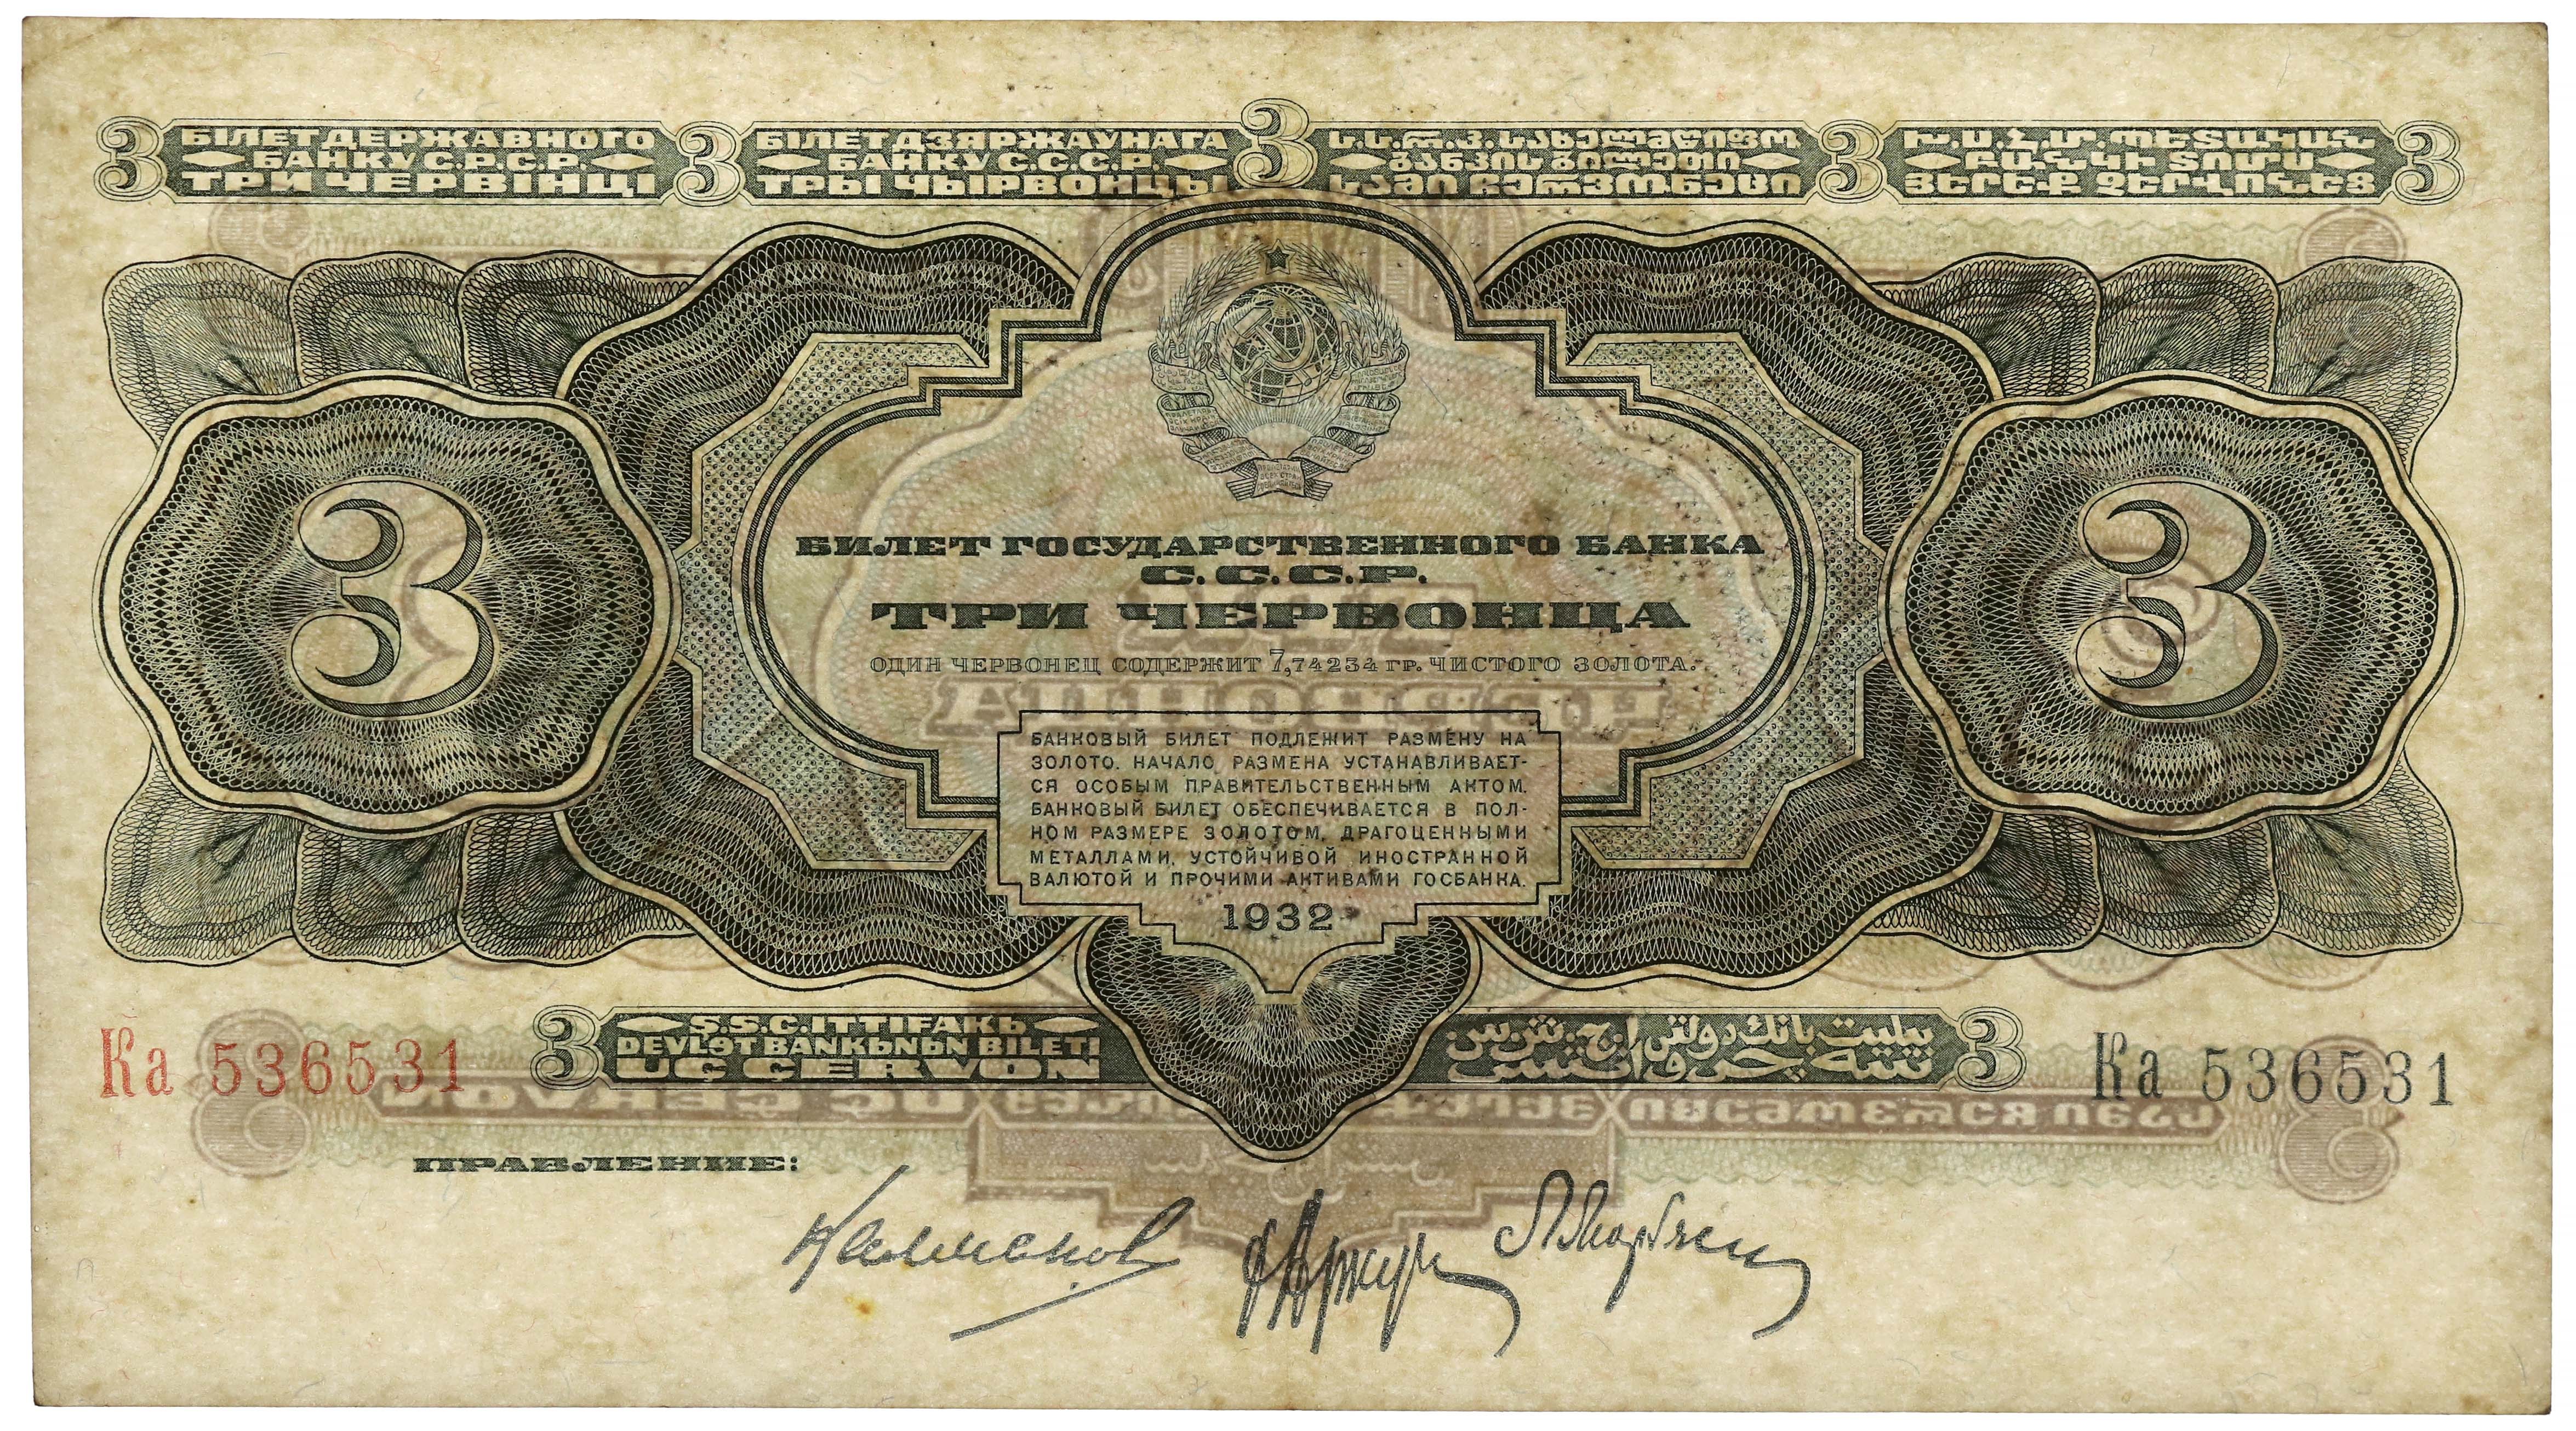 3 3 3 3 3
БІЛЕТ ДЕРЖАВНОГО
БАНКУ С.Р.С.Р.
ТРИ ЧЕРВІНЦІ
БІЛЕТ ДЗЯРЖАУНАГА
БАНКУ С.С.С.Р.
ТРЫ ЧЫРВОНЦЫ
ს.ს.რ.კ. სახელმწიფო
ბანკის ბილეთი
სამი ჩერვონეცი
Խ.Ս.Հ.Մ. ՊԵՏԱԿԱՆ
ԲԱՆԿԻ ՏՈՄՍ
ՅԵՐԵՔ ՉԵՐՎՈՆԵՑ
БИЛЕТ ГОСУДАРСТВЕННОГО БАНКА
С.С.С.Р.
ТРИ ЧЕРВОНЦА
ОДИН ЧЕРВОНЕЦ СОДЕРЖИТ 7,74234 ГР. ЧИСТОГО ЗОЛОТА.
3 3
БАНКОВЫЙ БИЛЕТ ПОДЛЕЖИТ РАЗМЕНУ НА
ЗОЛОТО. НАЧАЛО РАЗМЕНА УСТАНАВЛИВАЕТ-
СЯ ОСОБЫМ ПРАВИТЕЛЬСТВЕННЫМ АКТОМ.
БАНКОВЫЙ БИЛЕТ ОБЕСПЕЧИВАЕТСЯ В ПОЛ-
НОМ РАЗМЕРЕ ЗОЛОТОМ, ДРАГОЦЕННЫМИ
МЕТАЛЛАМИ, УСТОЙЧИВОЙ ИНОСТРАННОЙ
ВАЛЮТОЙ И ПРОЧИМИ АКТИВАМИ ГОСБАНКА.
1932
Ка 536531
3
Ş.S.C. ITTIFAKЬ
DEVLƏT BANKЬNЬN BILETI
UC CERVON
بيليت بانك دولتى
3
Ка 536531
ПРАВЛЕНИЕ:
Калманов